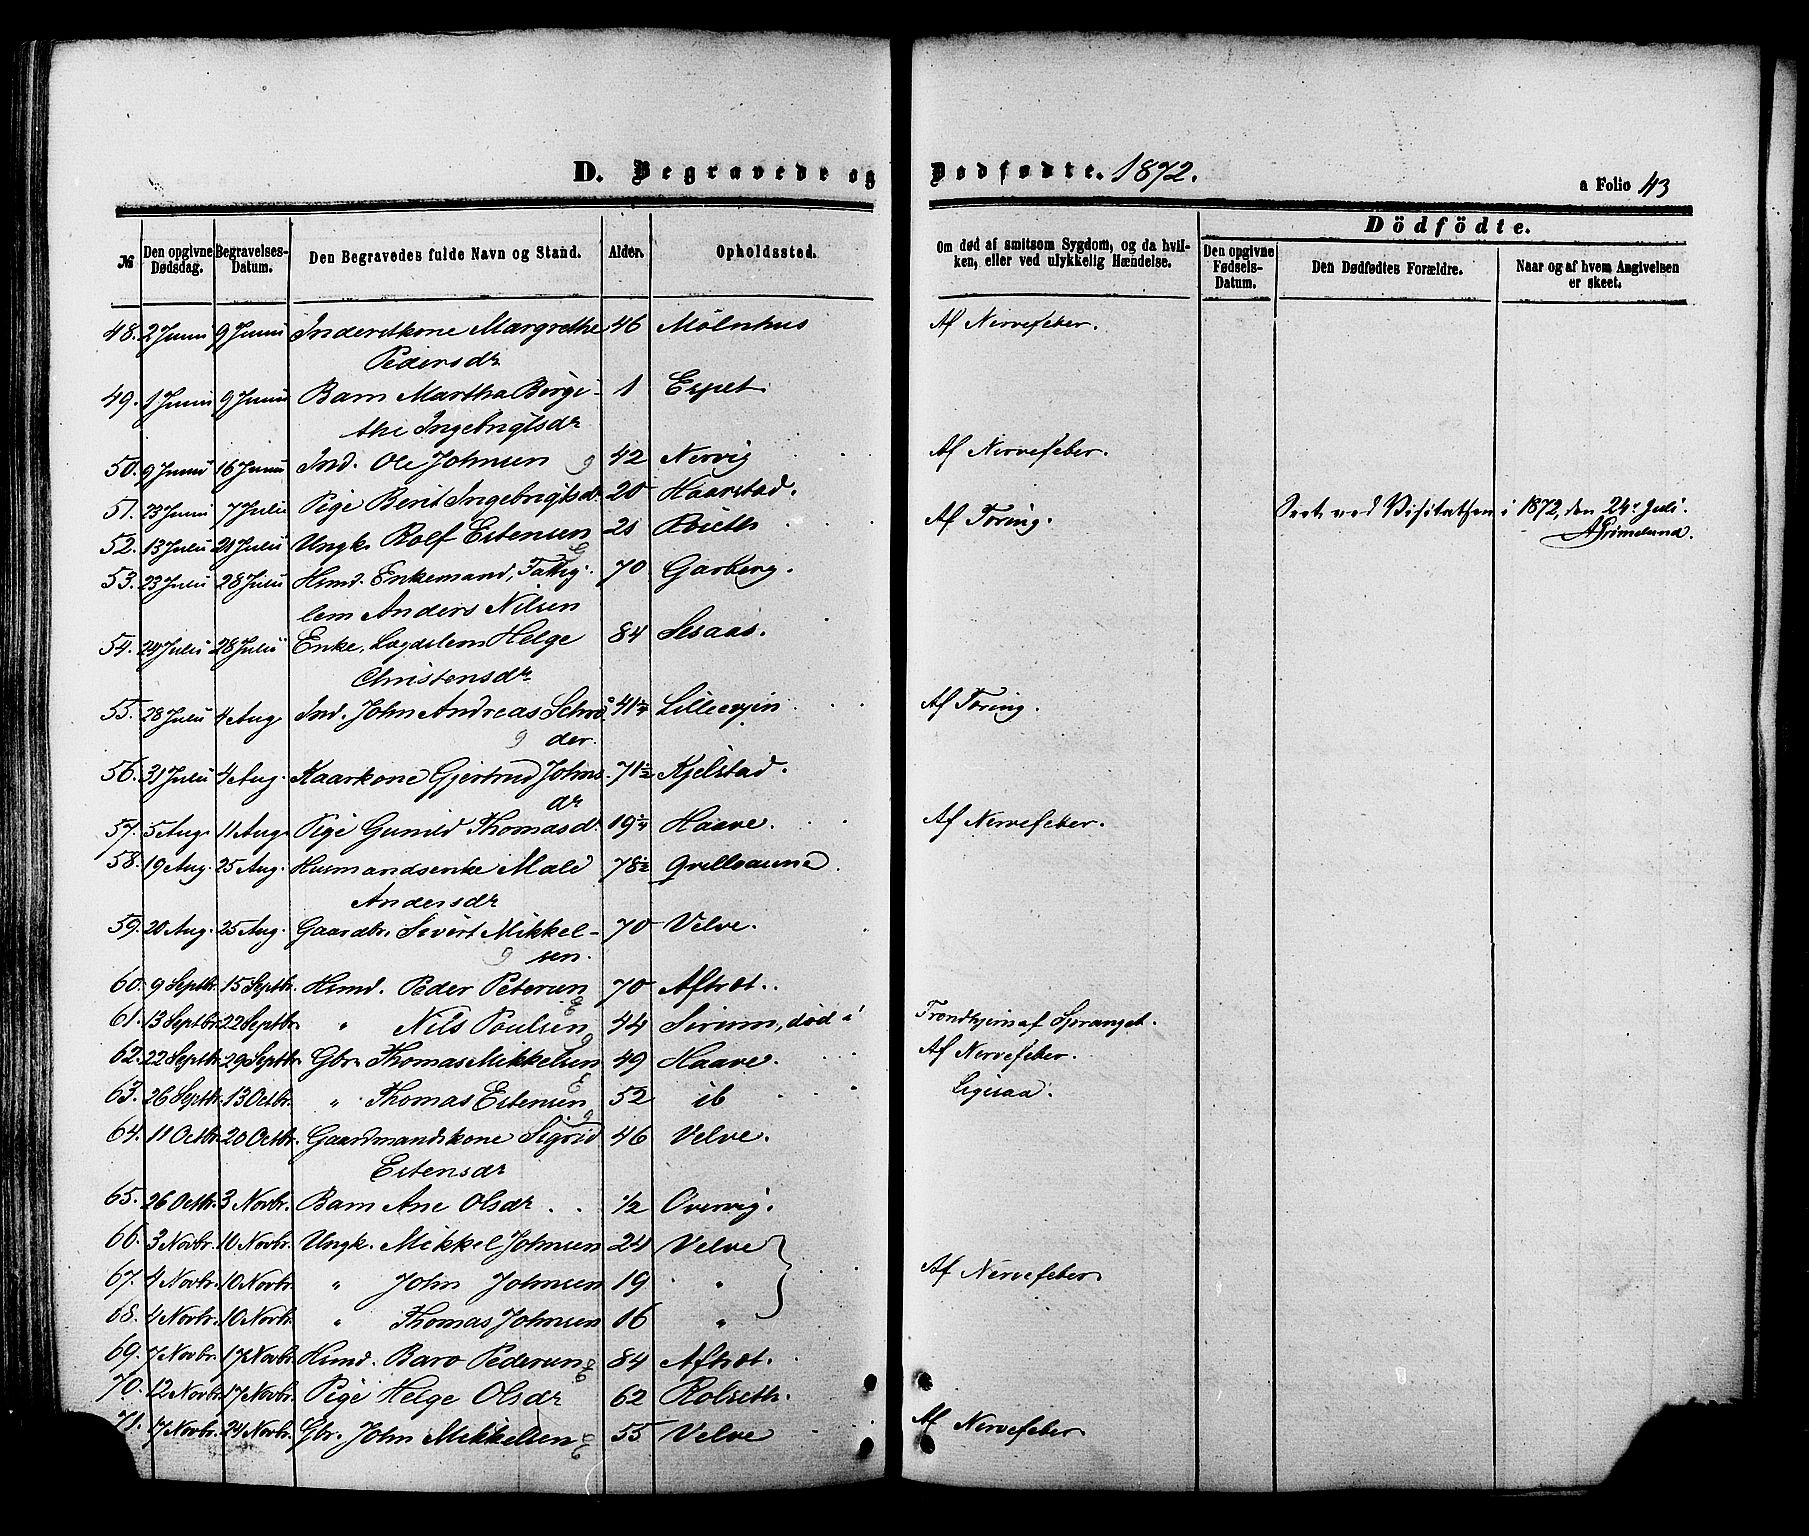 D. Begravede og Dødfødte. 1872.
a Folio 43
№ Den opgivne Dødsdag. Begravelses-Datum. Den Begravedes fulde Navn og Stand. Alder. Opholdssted. Om død af smitsom Sygdom, og da hvilken, eller ved ulykkelig Hændelse. Dödfödte. Den opgivne Fødsels-Datum. Den Dødfødtes Forældre. Naar og af hvem Angivelsen er skeet.
48. 2 Juni 9 Juni Inderstkone Margrethe 46 Mölnhus Af Nervefeber.
Pedersdr
49. 1 Juni 9 Juni Barn Martha Birgi- 1 Espet
the Ingebrigtsdr
50. 9 Juni 16 Juni Ind. Ole Johnsen 42 Nervig Af Nervefeber.
51. 23 Juni 7 Juli Pige Berit Ingebrigtsd. 20 Haarstad.
Seet ved Visitatsen i 1872, den 24de Juli.
AGrimelund.
52. 13 Juli 21 Juli Ungk. Rolf Estensen 21 Af Tæring.
53. 23 Juli 28 Juli Husmd. Enkemand, Fattig- 70 Garberg.
lem Anders Nilsen
54. 24 Juli 28 Juli Enke, Lægdslem Helge 84 Sesaas.
Christensdr
55. 28 Juli 4 Aug. Ind. John Andreas Schrø 41 3/4 Lilleevjen Af Tæring.
der.
56. 31 Juli 4 Aug. Kaarkone Gjertrud Johns 71 1/2 Kjelstad.
dr
57. 5 Aug. 11 Aug. Pige Gunild Thomasd. 19 1/4 Haave. Af Nervefeber.
58. 19 Aug. 25 Aug. Husmandsenke Male 78 1/2
Andersdr
59. 20 Aug. 25 Aug. Gaardbr. Sivert Mikkel- 70 Velve.
sen.
60. 9 Septbr. 15 Septbr. Husmd. Peder Petersen 70 Aftret.
61. 13 Septbr. 22 Septbr. " Nils Poulsen 44 Sirum, død i Trondhjem af Spranget.
62. 22 Septbr. 29 Septbr. Gbr. Thomas Mikkelsen 49 Haave. Af Nervefeber.
63. 26 Septbr. 13 Octbr. " Thomas Estensen 52 ib Ligesaa.
64. 11 Octbr. 20 Octbr. Gaardmandskone Sigrid 46 Velve.
Estensdr
65. 26 Octbr. 3 Novbr. Barn Ane Olsdr 1/2 Övervig.
66. 3 Novbr. 10 Novbr. Ungk. Mikkel Johnsen 24 Velve
67. 4 Novbr. 10 Novbr. " John Johnsen 19 " Af Nervefeber.
68. 4 Novbr. 10 Novbr. " Thomas Johnsen 16 "
69. 7 Novbr. 17 Novbr. Husmd. Baro Pedersen 84 Aftret.
70. 12 Novbr. 17 Novbr. Pige Helge Olsdr 62 Rolseth.
71. 17 Novbr. 24 Novbr. Gbr. John Mikkelsen 55 Velve Af Nervefeber.